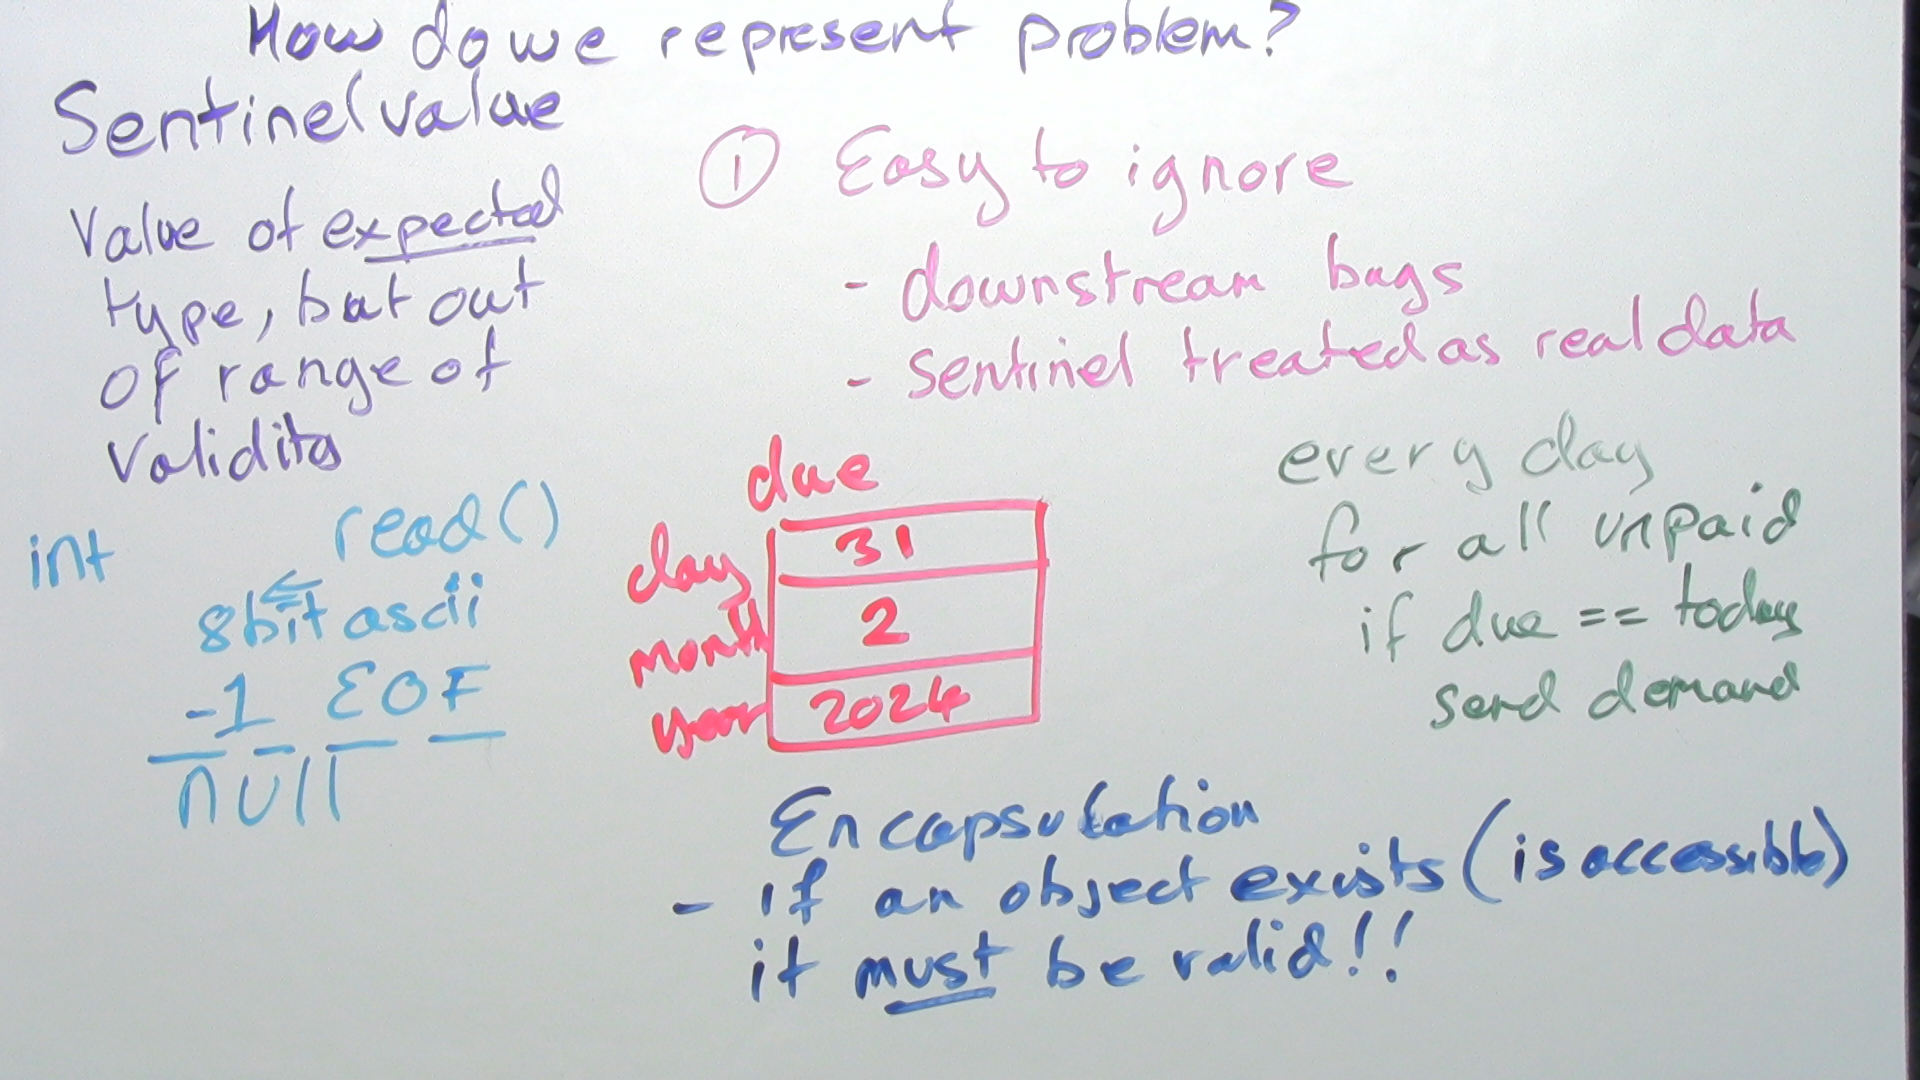 How do we represent problem?
Sentinel value
Value of expected
type, but out
of range of
validity
int read()
8bit ascii
-1 EOF
null
① Easy to ignore
- downstream bugs
- sentinel treated as real data
due
day 31
month 2
year 2024
every day
for all unpaid
if due == today
send demand
Encapsulation
- if an object exists (is accessible)
it must be valid!!